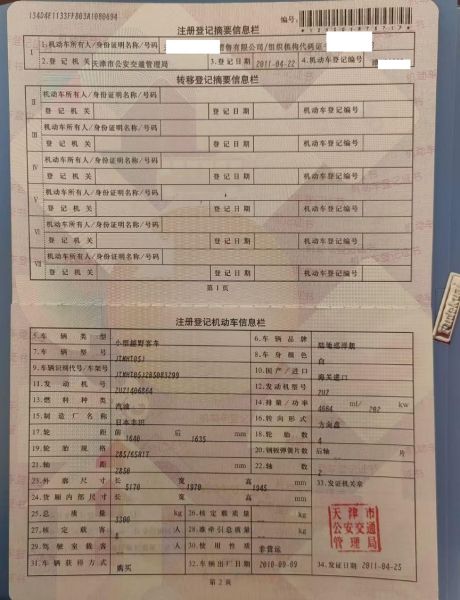 134D4E1133FFB03A1080694
注册登记摘要信息栏
编号:
I 1.机动车所有人/身份证明名称/号码 售有限公司/组织机构代码证
2.登记机关 天津市公安交通管理局 3.登记日期 2011-04-22 4.机动车登记编号
转移登记摘要信息栏
II 机动车所有人/身份证明名称/号码
登记机关 登记日期 机动车登记编号
III 机动车所有人/身份证明名称/号码
登记机关 登记日期 机动车登记编号
IV 机动车所有人/身份证明名称/号码
登记机关 登记日期 机动车登记编号
V 机动车所有人/身份证明名称/号码
登记机关 登记日期 机动车登记编号
VI 机动车所有人/身份证明名称/号码
登记机关 登记日期 机动车登记编号
VII 机动车所有人/身份证明名称/号码
登记机关 登记日期 机动车登记编号
第1页
注册登记机动车信息栏
5.车辆类型 小型越野客车 6.车辆品牌 陆地巡洋舰
7.车辆型号 JTMHT05J 8.车身颜色 白
9.车辆识别代号/车架号 JTMHT05J2B5083299 10.国产/进口 海关进口
11.发动机号 2UZ1406864 12.发动机型号 2UZ
13.燃料种类 汽油 14.排量/功率 4664 ml/ 202 kw
15.制造厂名称 日本丰田 16.转向形式 方向盘
17.轮距 前 1640 后 1635 mm 18.轮胎数 4
19.轮胎规格 285/65R17 20.钢板弹簧片数 后轴 -- 片
21.轴距 2850 mm 22.轴数 2
23.外廓尺寸 长 5170 宽 1970 高 1945 mm 33.发证机关章
24.货厢内部尺寸 长 宽 高 mm
25.总质量 3300 kg 26.核定载质量 -- kg
27.核定载客 8 人 28.准牵引总质量 -- kg
29.驾驶室载客 -- 人 30.使用性质 非营运
31.车辆获得方式 购买 32.车辆出厂日期 2010-09-09 34.发证日期 2011-04-25
天津市
公安交通
管理局
第2页